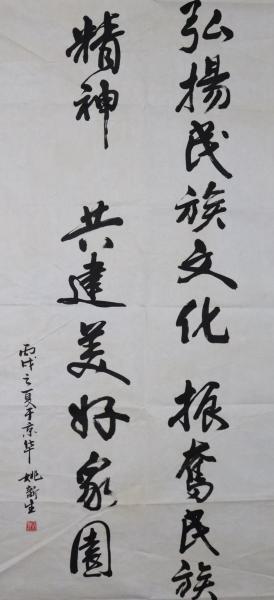 弘揚民族文化 振奮民族
精神 共建美好家園
丙戌之夏于京华 姚新生